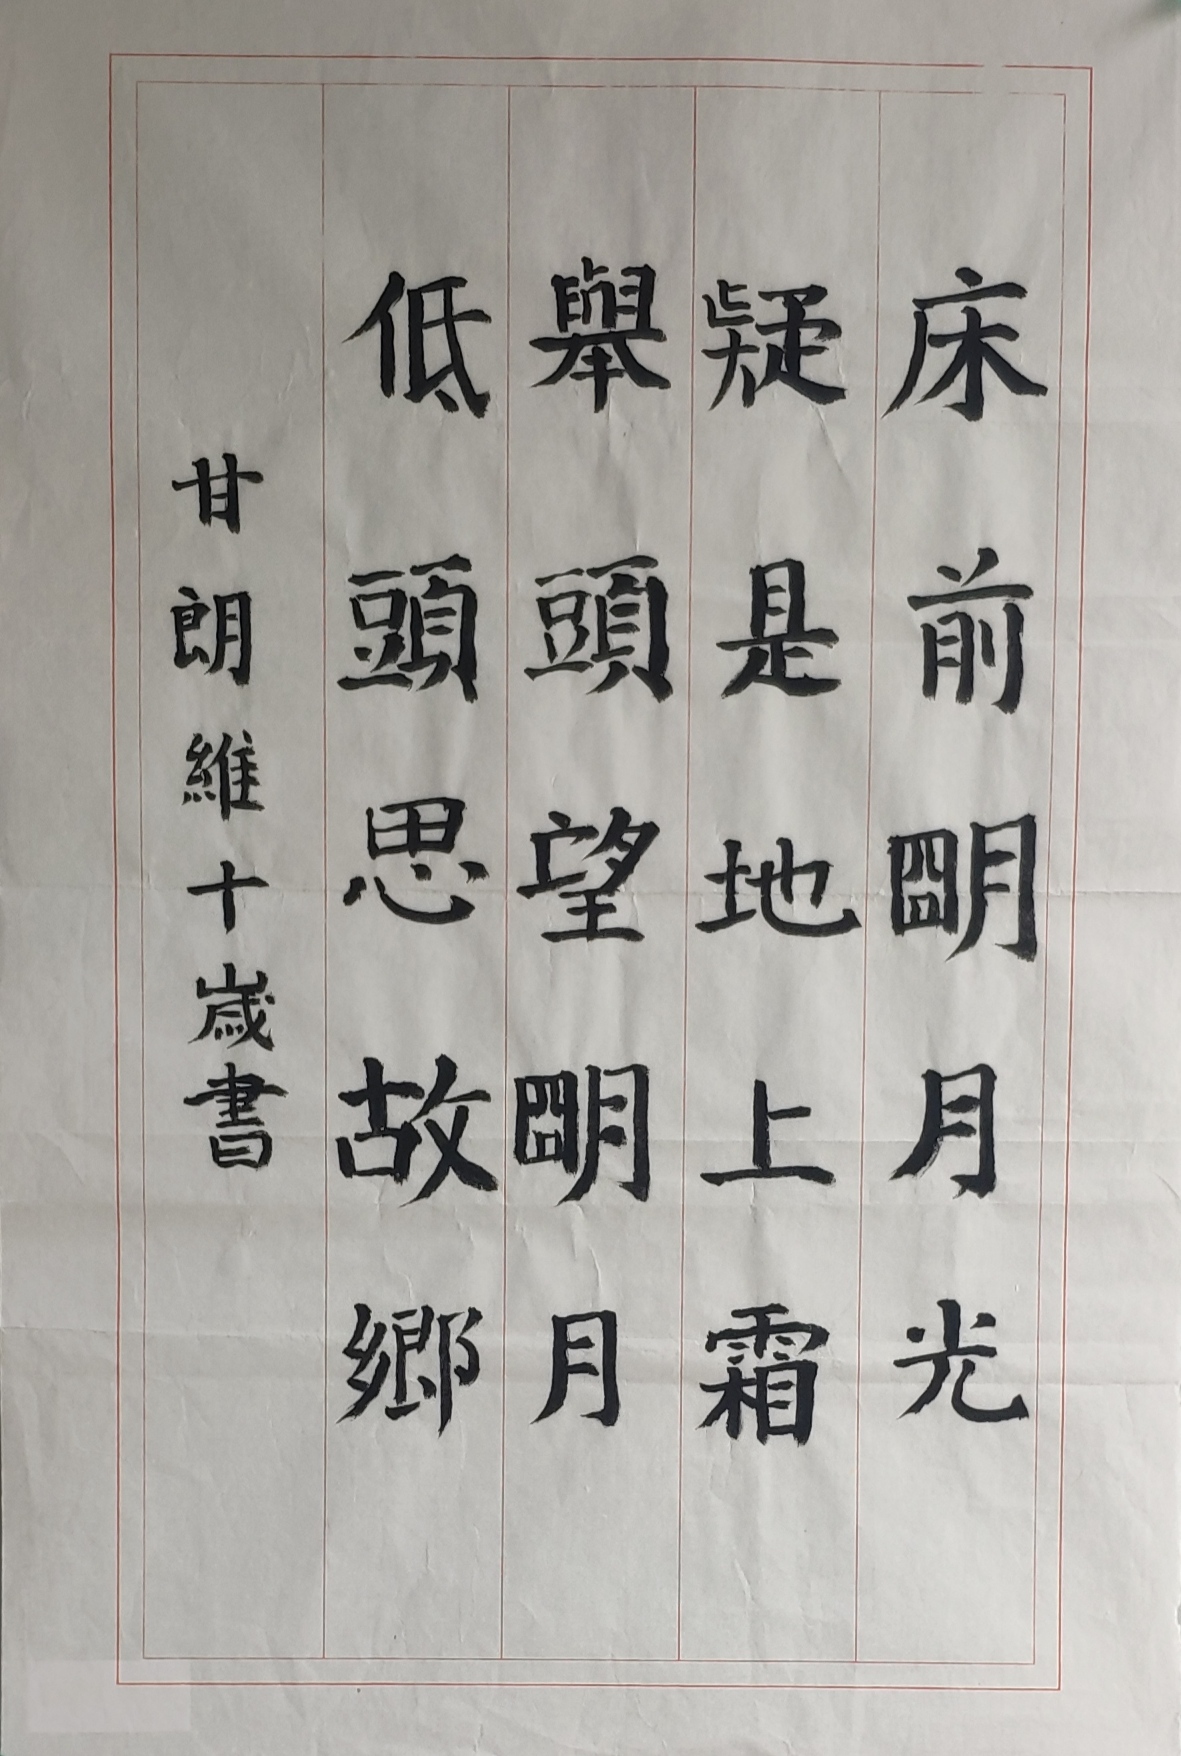 床前朙月光
疑是地上霜
舉頭望朙月
低頭思故鄉
甘朗維十歲書